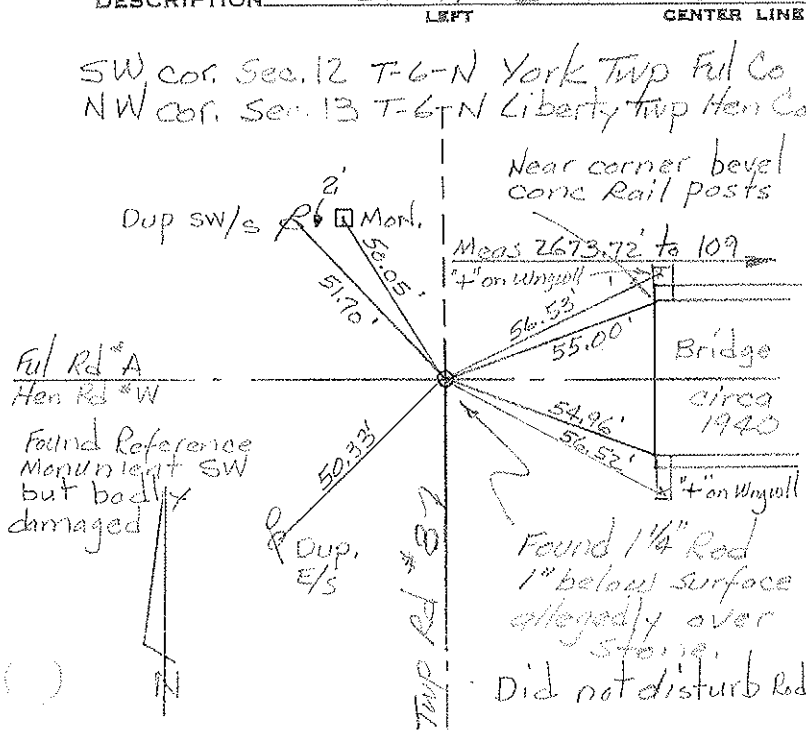 DESCRIPTION
LEFT
CENTER LINE
SW cor. Sec. 12 T-6-N York Twp Ful Co
NW cor. Sec. 13 T-6-N Liberty Twp Hen Co
Near corner bevel
conc Rail posts
2'
Dup SW/s
Mon.
50.05'
51.70'
Meas 2673.72' to 109
"+" on Wngwall
56.53'
55.00'
Bridge
circa
1940
Ful Rd #A
Hen Rd #W
54.96'
56.52'
"+" on Wngwall
Found Reference
Monument SW
but badly
damaged
50.33'
Dup.
E/s
Found 1¼" Rod
1" below surface
allegedly over
Stone.
Did not disturb Rod
Twp Rd
N